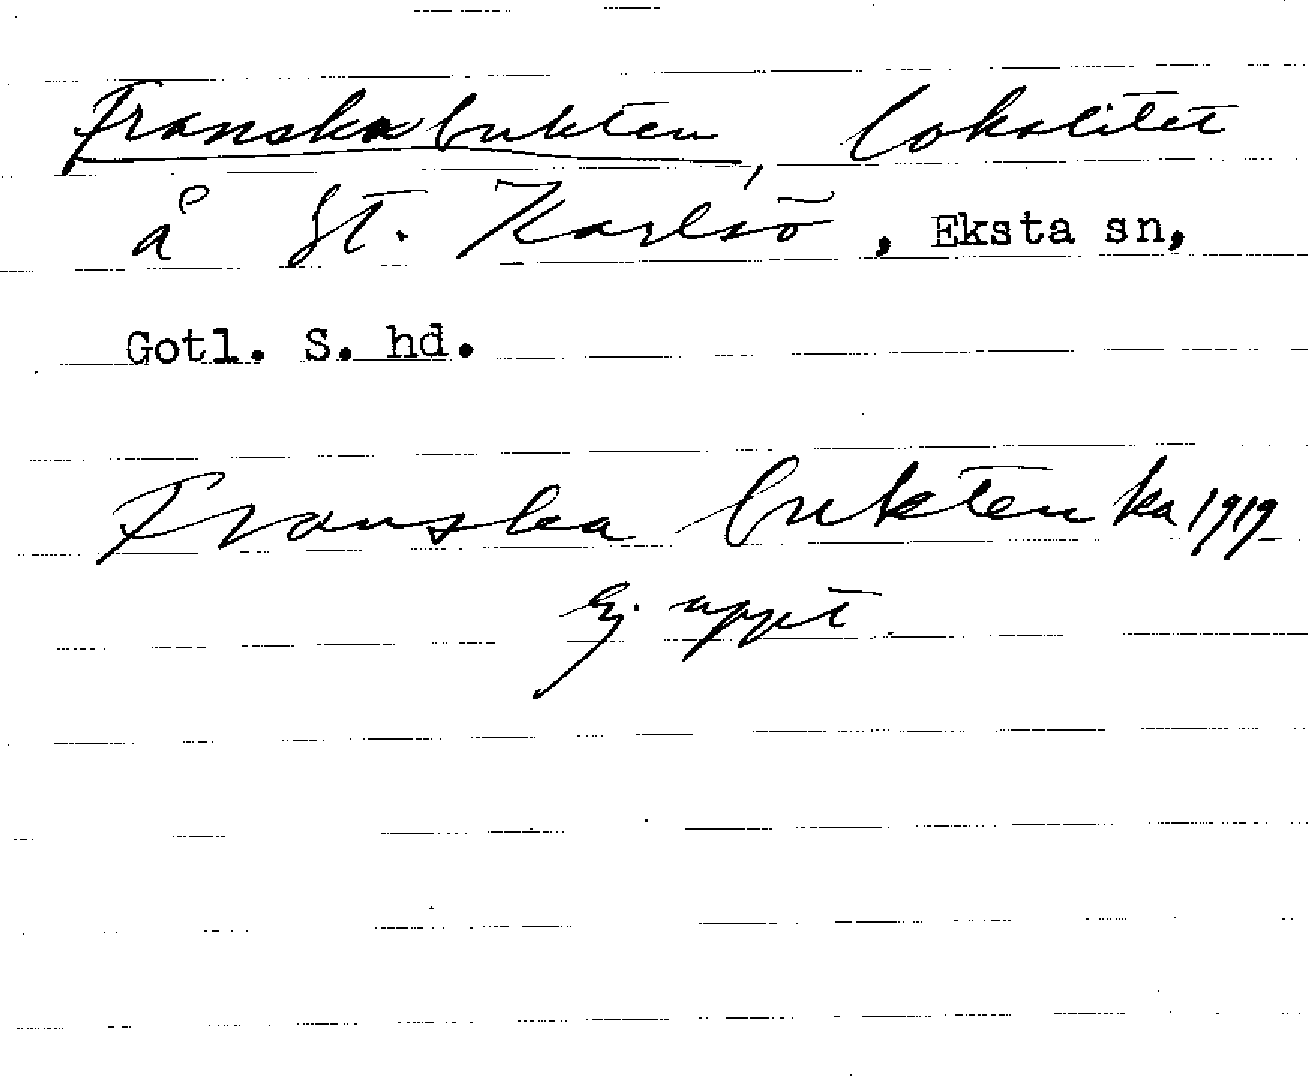 Franska bukten, lokalitet
å St. Karlsö, Eksta sn,
Gotl. S. hd.
Franska bukten ka 1919
Ej uppt